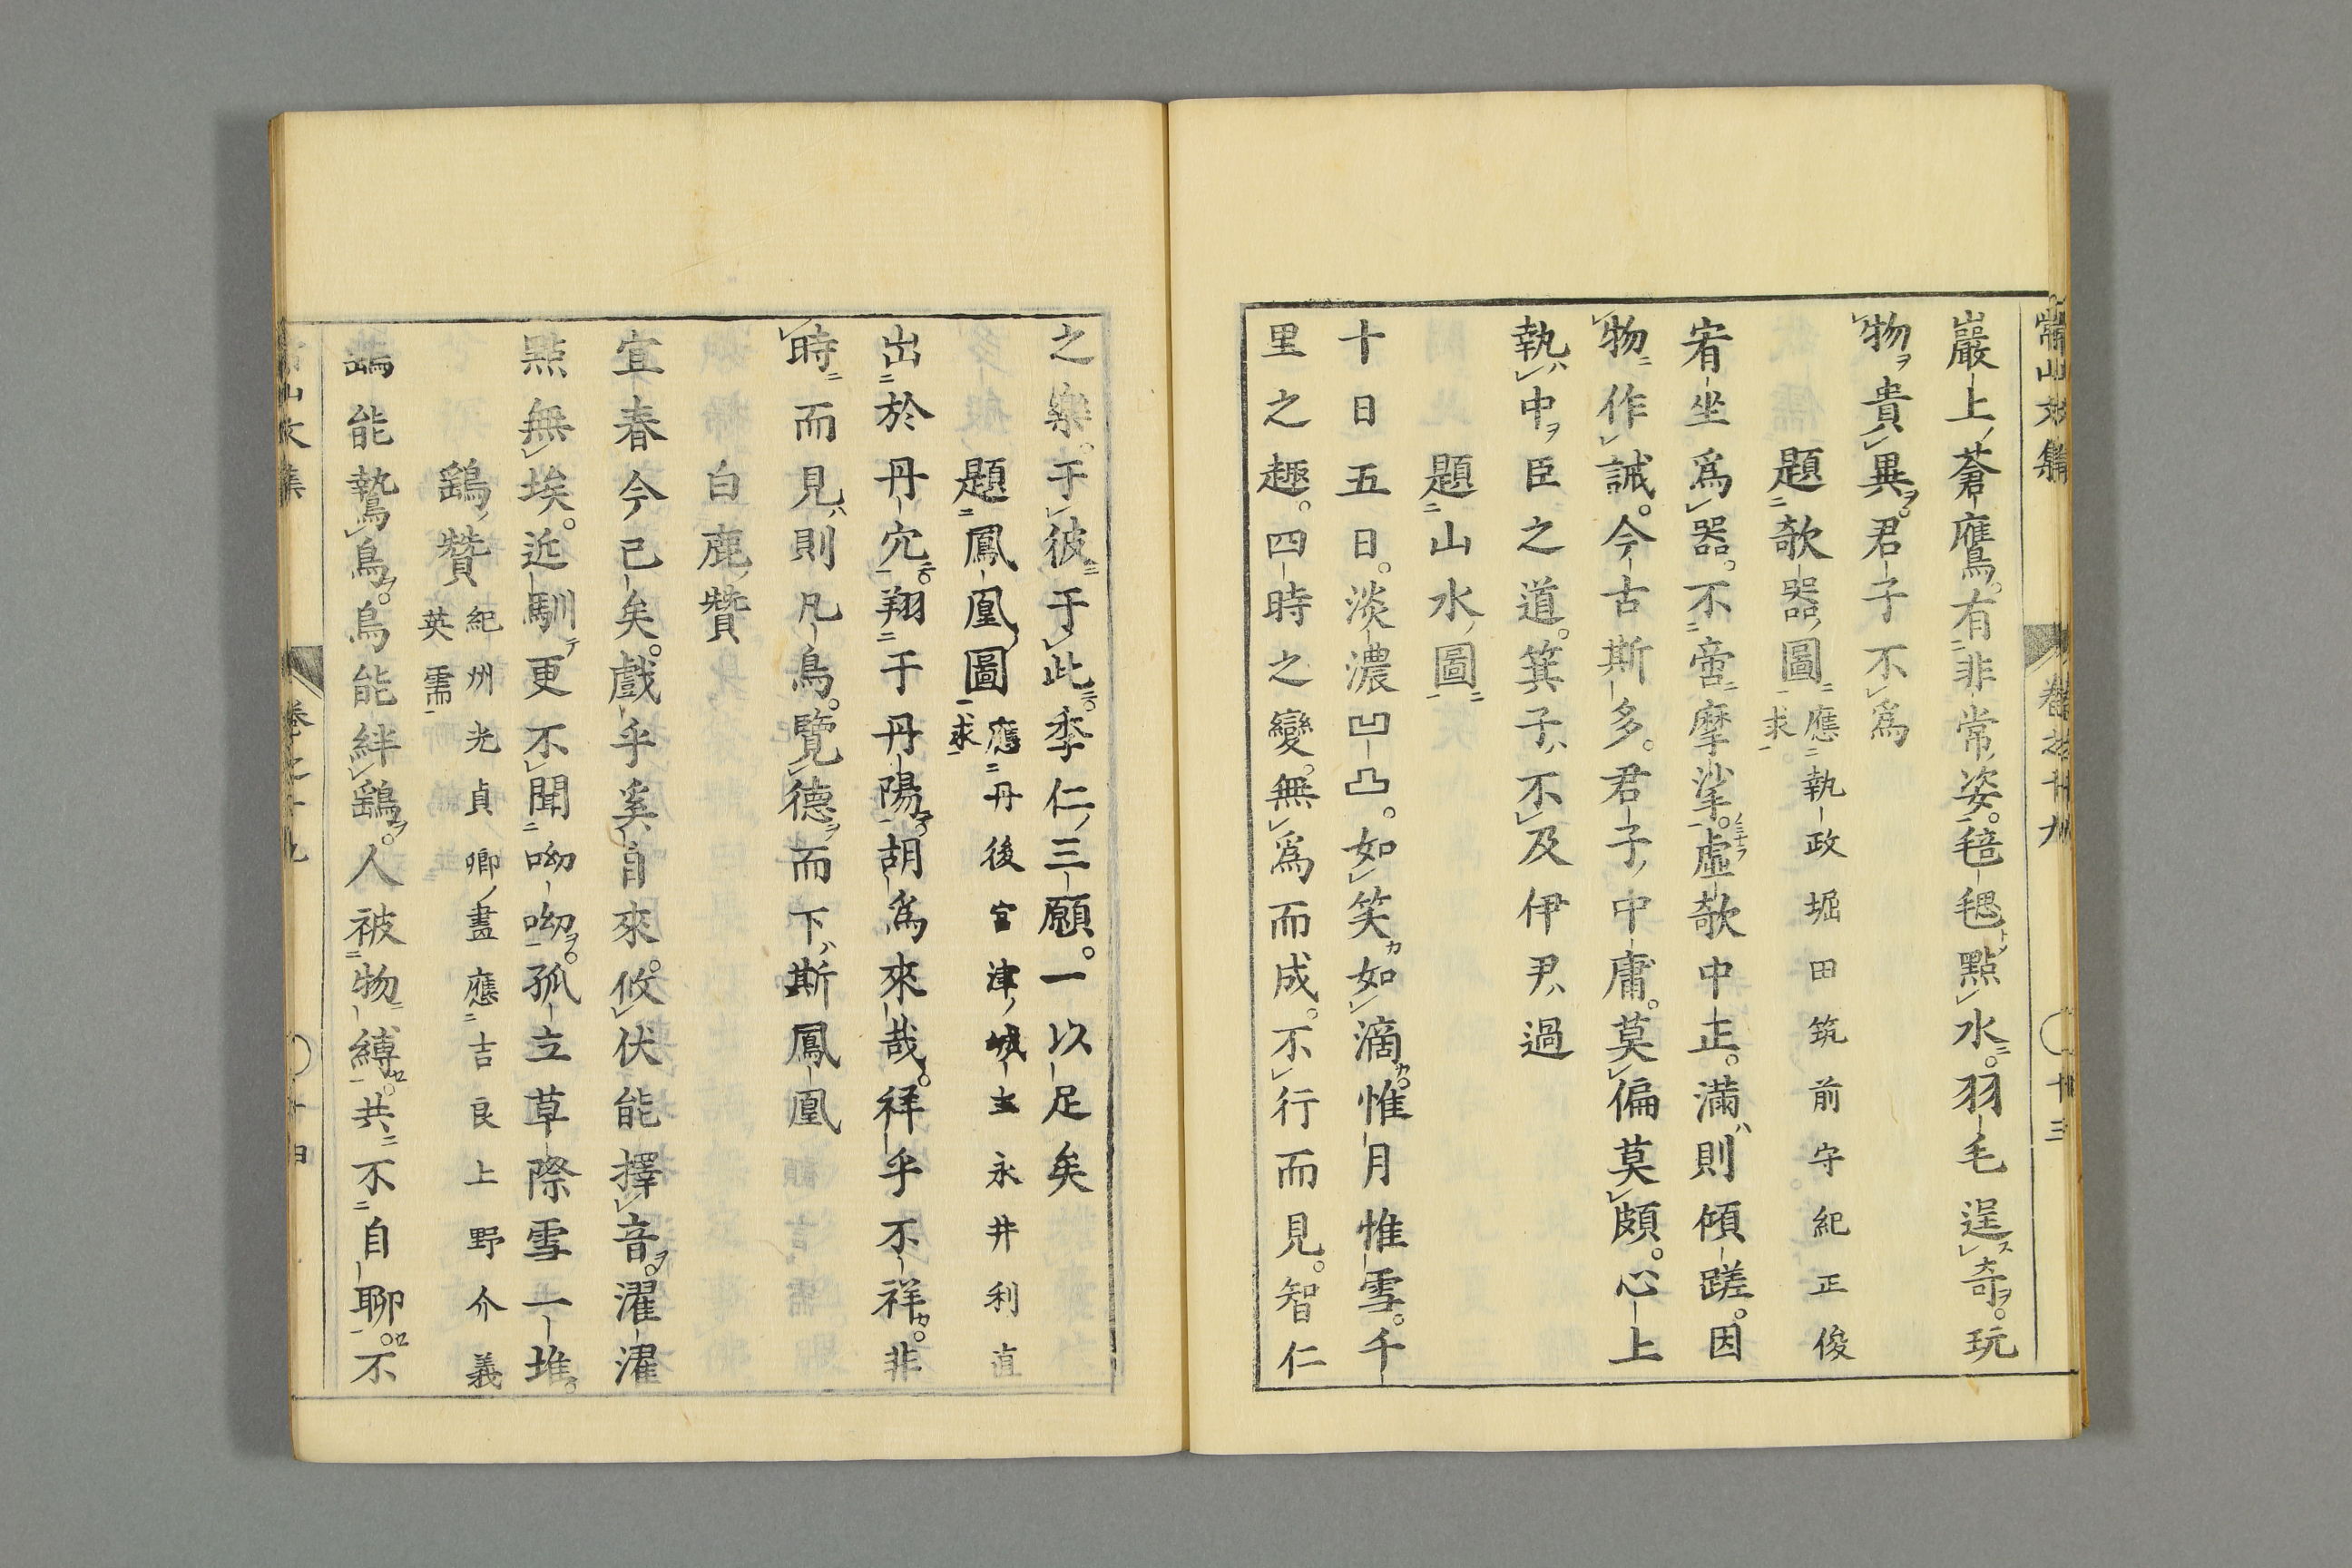 巖上蒼鷹。有非常姿。毰毸點水。羽毛逞奇。玩
物貴異。君子不爲
題欹器圖應執政堀田筑前守紀正俊
求
宥坐爲器。不啻摩挲。虛欹中正。滿則傾蹉。因
物作誡。今古斯多。君子中庸。莫偏莫頗。心上
執中臣之道。箕子不及伊尹過
題山水圖
十日五日。淡濃凹凸。如笑如滴。惟月惟雪。千
里之趣。四時之變。無爲而成。不行而見。智仁
之樂。于彼于此。季仁三願。一以足矣
題鳳凰圖應丹後宮津城主永井利直
求
出於丹穴。翔于丹陽。胡爲來哉。祥乎不祥。非
時而見則凡鳥。覽德而下斯鳳凰
白鹿贊
宜春今已矣。戲乎奚自來。攸伏能擇音。濯濯
點無埃。近馴更不聞呦呦。孤立草際雪一堆。
鷂贊紀州光貞卿畫應吉良上野介義
英需
鷂能鷙鳥。鳥能絆鷂。人被物縛。共不自聊。不
常山文集
十三